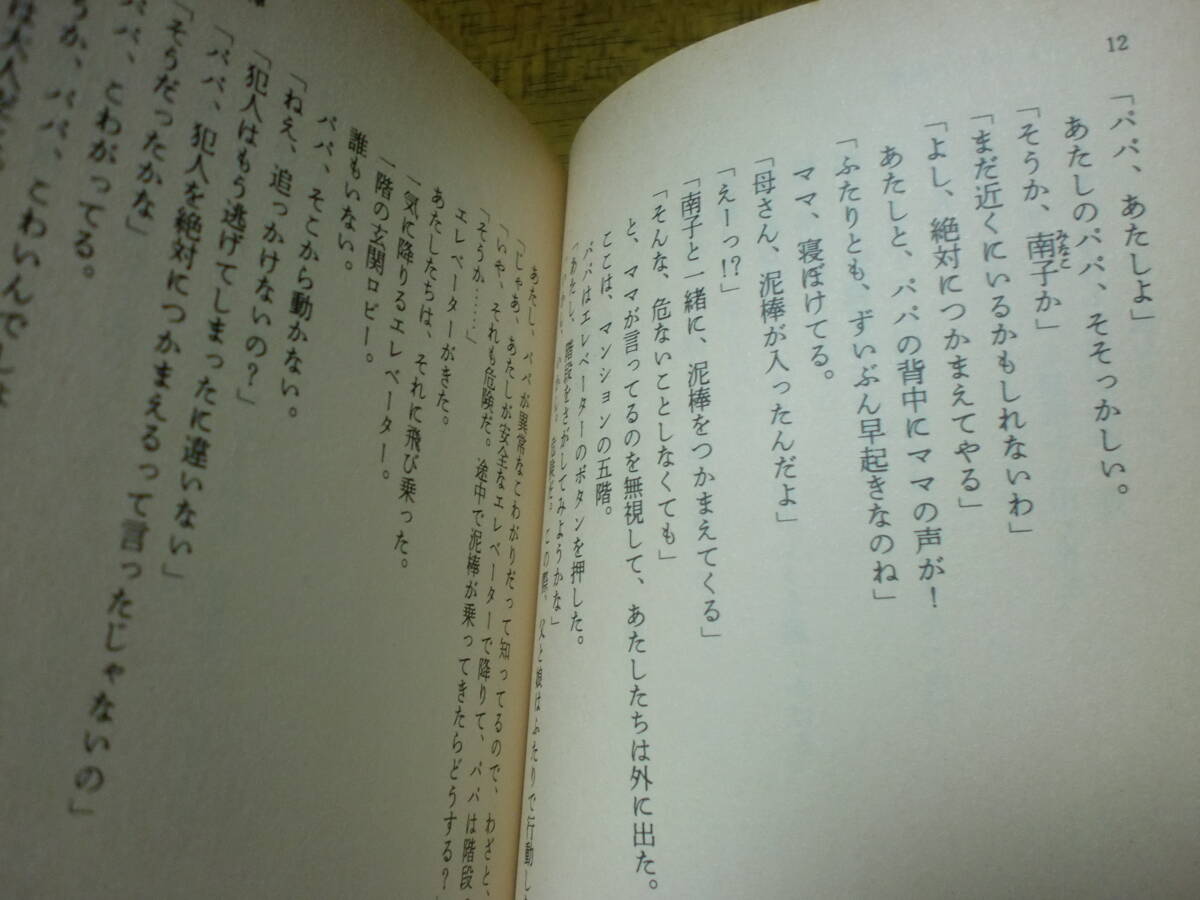 12
「パパ、あたしよ」
あたしのパパ、そそっかしい。
「そうか、南子か」
みなこ
「まだ近くにいるかもしれないわ」
「よし、絶対につかまえてやる」
あたしと、パパの背中にママの声が!
「ふたりとも、ずいぶん早起きなのね」
ママ、寝ぼけてる。
「母さん、泥棒が入ったんだよ」
「えーっ!?」
「南子と一緒に、泥棒をつかまえてくる」
「そんな、危ないことしなくても」
と、ママが言ってるのを無視して、あたしたちは外に出た。
ここは、マンションの五階。
パパはエレベーターのボタンを押した。
「あたし、階段をさがしてみようかな」
危険だ。この際、父と娘はふたりで行動し
あたし、パパが異常なこわがりだって知ってるので、わざと、
「じゃあ、あたしが安全なエレベーターで降りて、パパは階段
「いや、それも危険だ。途中で泥棒が乗ってきたらどうする?
「そうか……」
エレベーターがきた。
あたしたちは、それに飛び乗った。
一気に降りるエレベーター。
一階の玄関ロビー。
誰もいない。
パパ、そこから動かない。
「ねえ、追っかけないの?」
「犯人はもう逃げてしまったに違いない」
「パパ、犯人を絶対につかまえるって言ったじゃないの」
「そうだったかな」
パパ、こわがってる。
パパ、こわいんでしょ